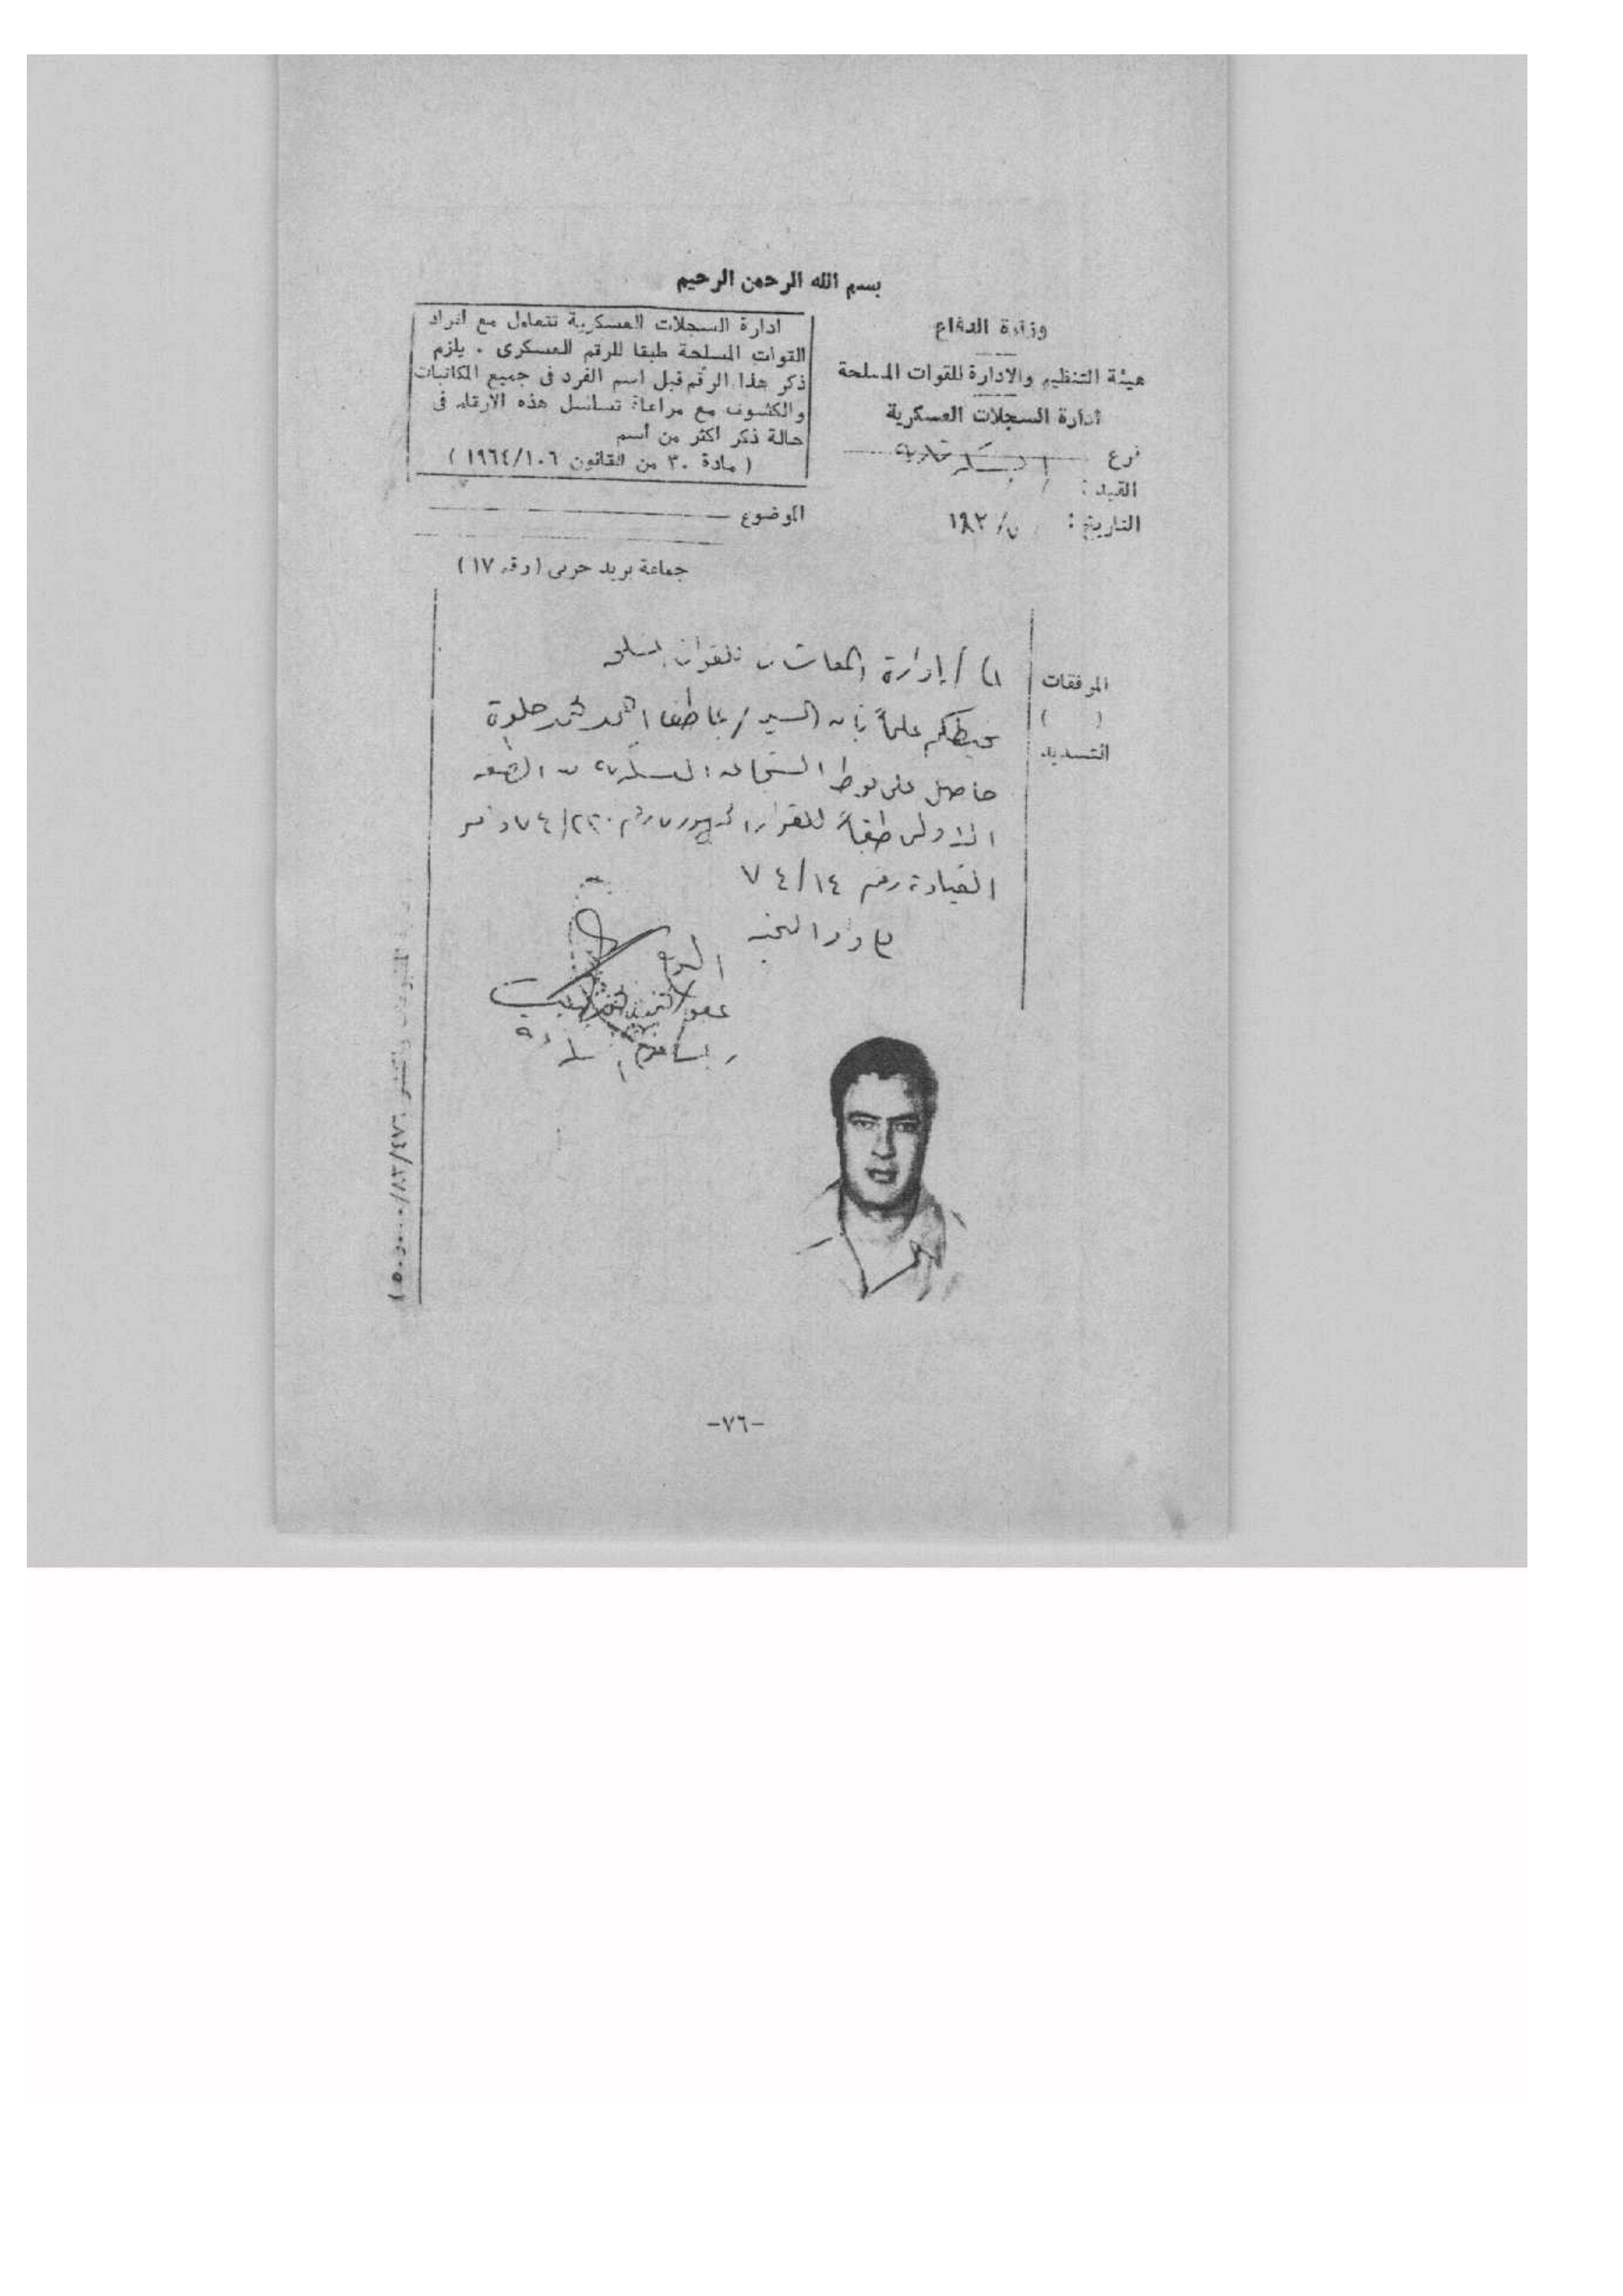 بسم الله الرحمن الرحيم
وزارة الدفاع
هيئة التنظيم والادارة للقوات المسلحة
ادارة السجلات العسكرية
فرع
القيد :
التاريخ : / ١٩٨
ادارة السجلات العسكرية تتعامل مع افراد
القوات المسلحة طبقا للرقم العسكرى . يلزم
ذكر هذا الرقم قبل اسم الفرد فى جميع المكاتبات
والكشوف مع مراعاة تسلسل هذه الارقام فى
حالة ذكر اكثر من أسم
( مادة ٣٠ من القانون ١٩٦٤/١٠٦ )
الموضوع
جماعة بريد حربى (رقم ١٧)
المرفقات
( )
التسديد
إدارة المعاشات للقوات المسلحة
نحيطكم علماً بأن السيد / عاطف احمد محمد حلاوة
حاصل على نوط الشجاعة العسكرى من الطبقة
الاولى طبقاً للقرار الجمهورى رقم ٧٤/٢٢٠
القيادة رقم ٧٤/١٤
المطبوعات والنشر ٨٣/٤٧٦
-٧٦-